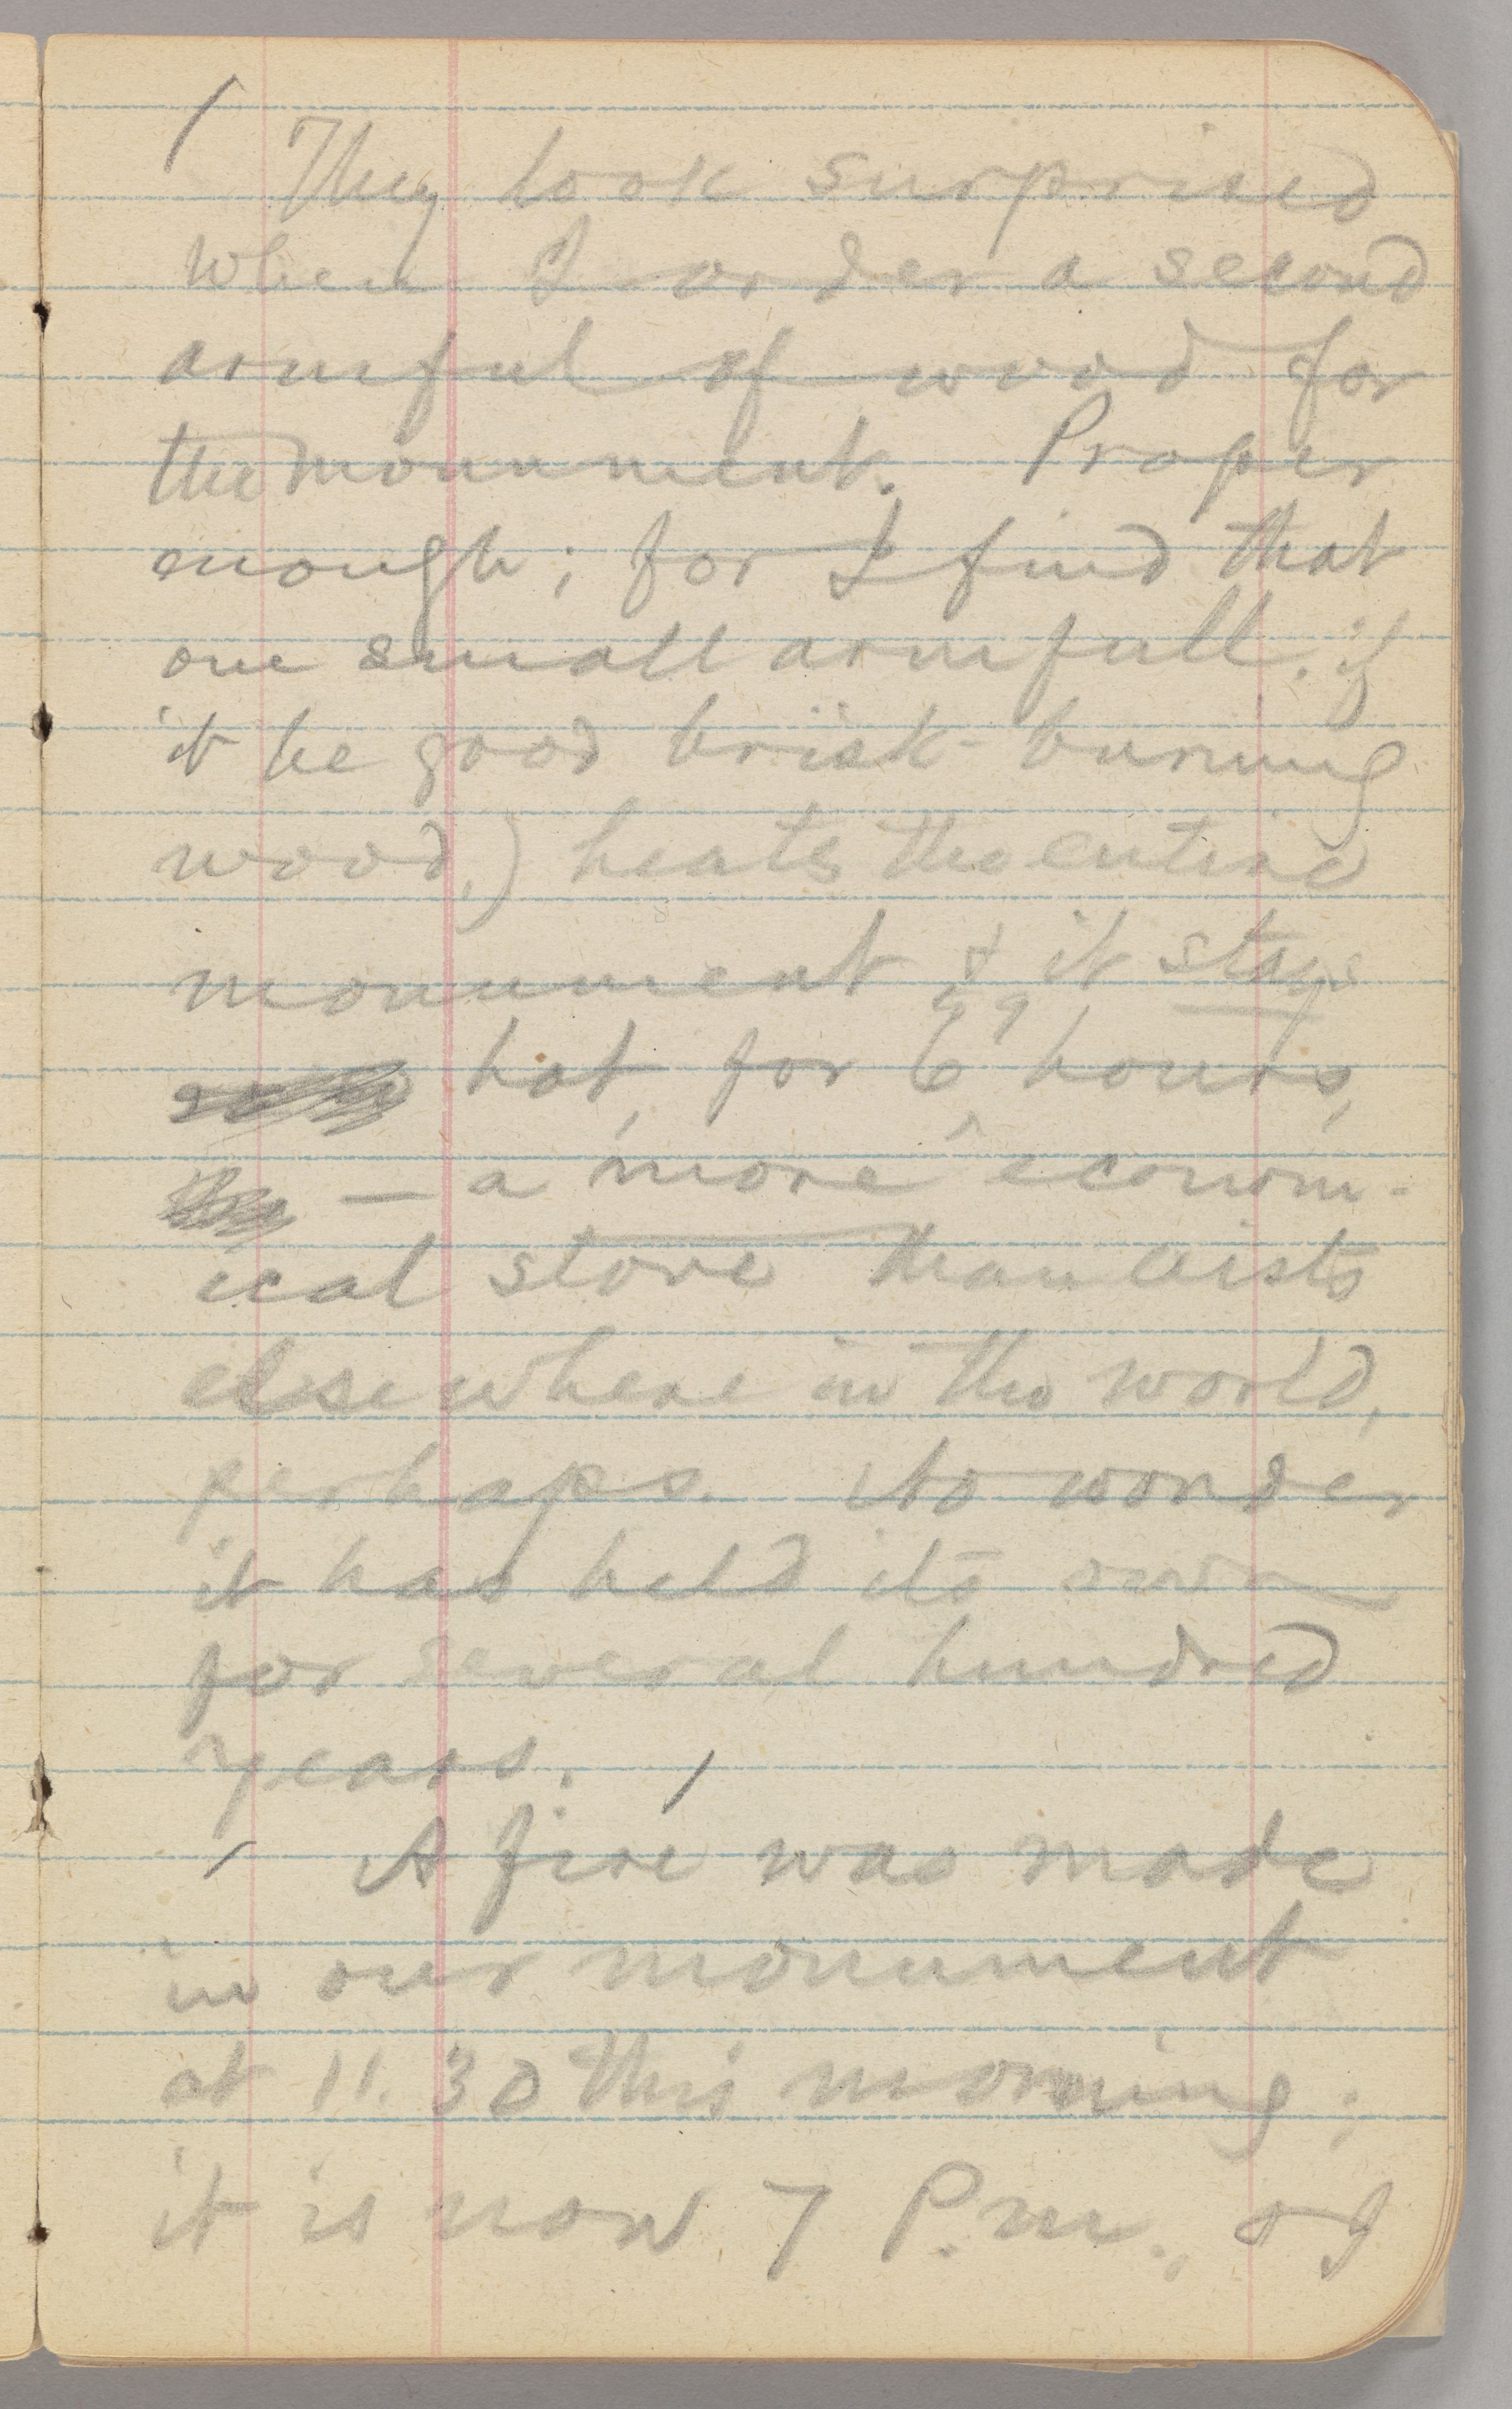 They look surprised
when I order a second
armful of wood for
the monument. Proper
enough; for I find that
one small armfull, if
it be good brisk-burning
wood,) heats the entire
monument & it stays
hot for 6 hours,
— a more econom-
ical stove than exists
elsewhere in the world,
perhaps. No wonder
it has held its own
for several hundred
years.
A fire was made
in our monument
at 11.30 this morning;
it is now 7 P.m., & I